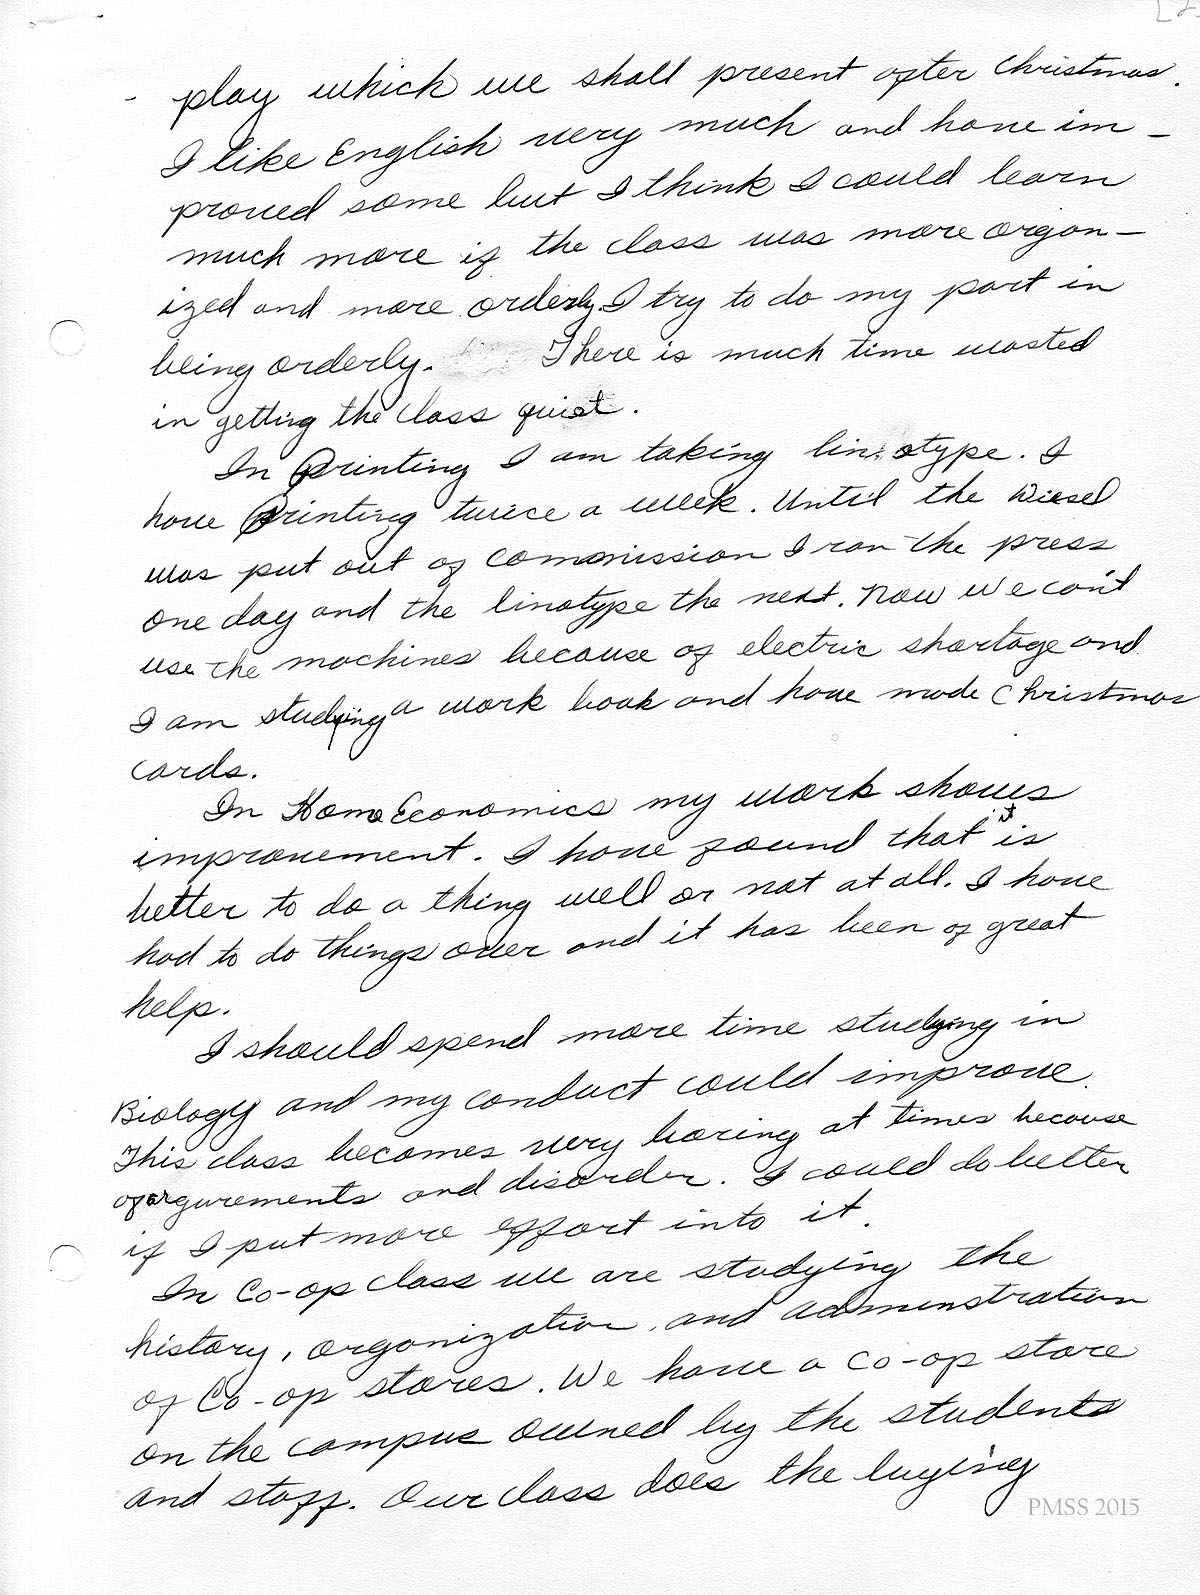 [2
- play which we shall present after Christmas.
I like English very much and have im-
proved some but I think I could learn
much more if the class was more organ-
ized and more orderly. I try to do my part in
being orderly. There is much time wasted
in getting the class quiet.
In Printing I am taking linotype. I
have Printing twice a week. Until the Diesel
was put out of commission I ran the press
one day and the linotype the next. Now we can't
use the machines because of electric shortage and
I am studying a work book and have made Christmas
cards.
In Home Economics my work shows
improvement. I have found that it is
better to do a thing well or not at all. I have
had to do things over and it has been of great
help.
I should spend more time studying in
Biology and my conduct could improve.
This class becomes very boring at times because
of argurements and disorder. I could do better
if I put more effort into it.
In Co-op class we are studying the
history, organization, and adminstration
of Co-op stores. We have a co-op store
on the campus owned by the students
and staff. Our class does the buying
PMSS 2015